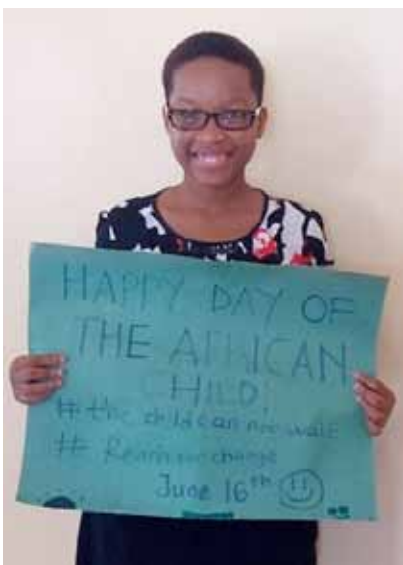 HAPPY DAY OF
THE AFRICAN
CHILD!
# the child can not wait
# Reach for change
June 16th